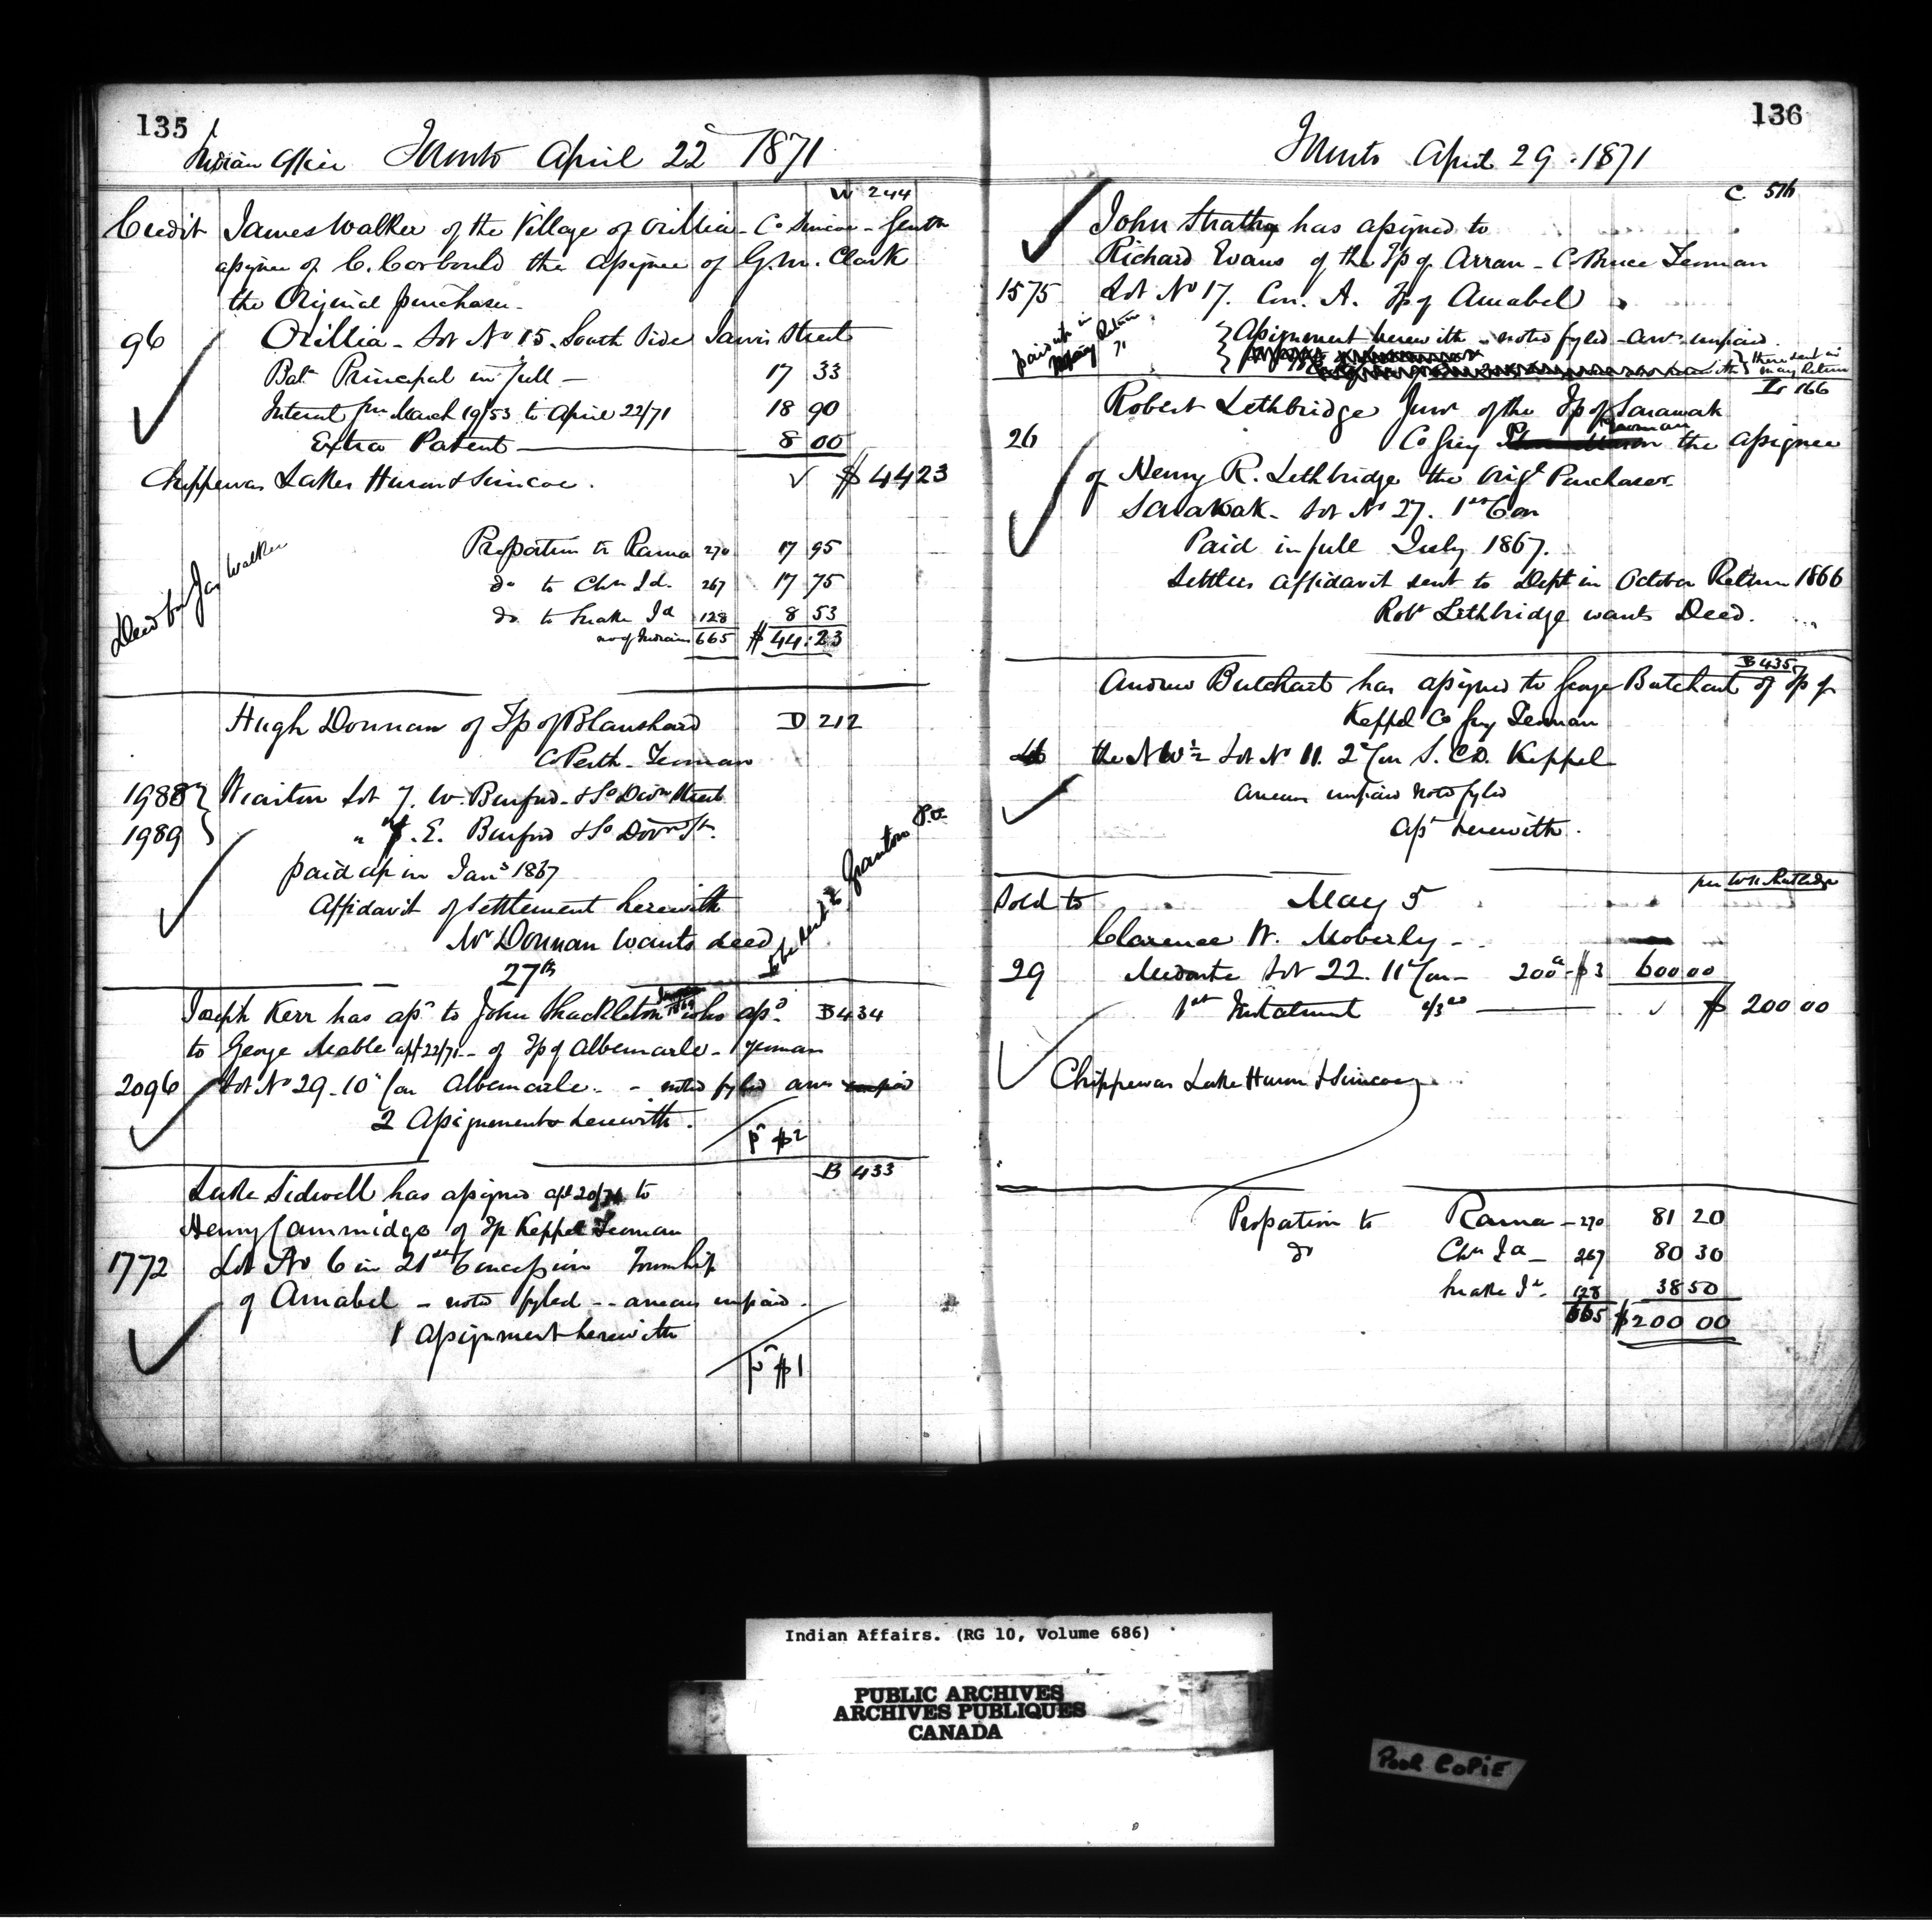 135
Indian Office Toronto April 22d 1871
W 244
Credit James Walker of the Village of Orillia - Co Simcoe - Gentn
assignee of C. Corbould the assignee of G. M. Clark
the Original purchaser -
96 Orillia - Lot No 15. South Side Jarvis Street
Bal. Principal in full - 17 33
Interest from March 19/53 to April 22/71 18 90
Extra Patent 8 00
Chippewas Lakes Huron & Simcoe. $ 44 23
Proportion to Rama 270 17 95
do to Chn Id. 267 17 75
do. to Snake Id 128 8 53
no of Indians 665 $ 44.23
Deed for Jas Walker
Hugh Donnan of Tp of Blanshard D 212
Co Perth - Yeoman
1988 Wiarton Lot 7. W. Berford & So Divn Street
1989 " 7. E. Berford & So Divn St.
paid up in Jany 1867
Affidavit of settlement herewith
Mr Donnan wants deed
to be sent to Granton P.O.
27th
Joseph Kerr has assd to John Shackleton who assd B 434
to George Mable apl 22/71 - of Tp of Albemarle - yeoman
2096 Lot No 29 - 10 Con Albemarle. - noted fyled arrs unpaid
2 Assignments herewith.
pd $2
B 433
Luke Sidwell has assigned apl 20/71 to
Henry Cammidge of Tp Keppel Yeoman
1772 Lot No 6 in 21st Concession Township
of Amabel - noted fyled - arrears unpaid -
1 Assignment herewith
pd $1
136
Toronto April 29 . 1871
C. 516
John Strathy has assigned to
Richard Evans of the Tp of Arran - Co Bruce Yeoman
1575 Lot No 17. Con. A. Tp of Amabel
paid up in May Return 71
Assignment herewith - noted fyled - arrs unpaid.
these sent in
May Return
L 166
Robert Lethbridge Junr of the Tp of Sarawak
26 Co Grey Yeoman the assignee
of Henry R. Lethbridge the Origl Purchaser
Sarawak - Lot No 27. 1st Con
Paid in full July 1867.
Settlers Affidavit sent to Dept in October Return 1866
Robt Lethbridge wants Deed.
B 435
Andrew Butchart has assigned to George Butchart of Tp of
Keppel Co Grey Yeoman
the N W ½ Lot No 11. 2d Con S. C. D. Keppel
arrears unpaid noted fyled
asst herewith.
Sold to May 5
Clarence W. Moberly -
29 Medonte Lot 22. 11 Con - 200a - $3 600 00
1st Instalment 1/3rd $ 200 00
Chippewas Lake Huron & Simcoe
Proportion to Rama - 270 81 20
do Chn Id - 267 80 30
Snake Id - 128 38 50
665 $200 00
Indian Affairs. (RG 10, Volume 686)
PUBLIC ARCHIVES
ARCHIVES PUBLIQUES
CANADA
POOR COPIE